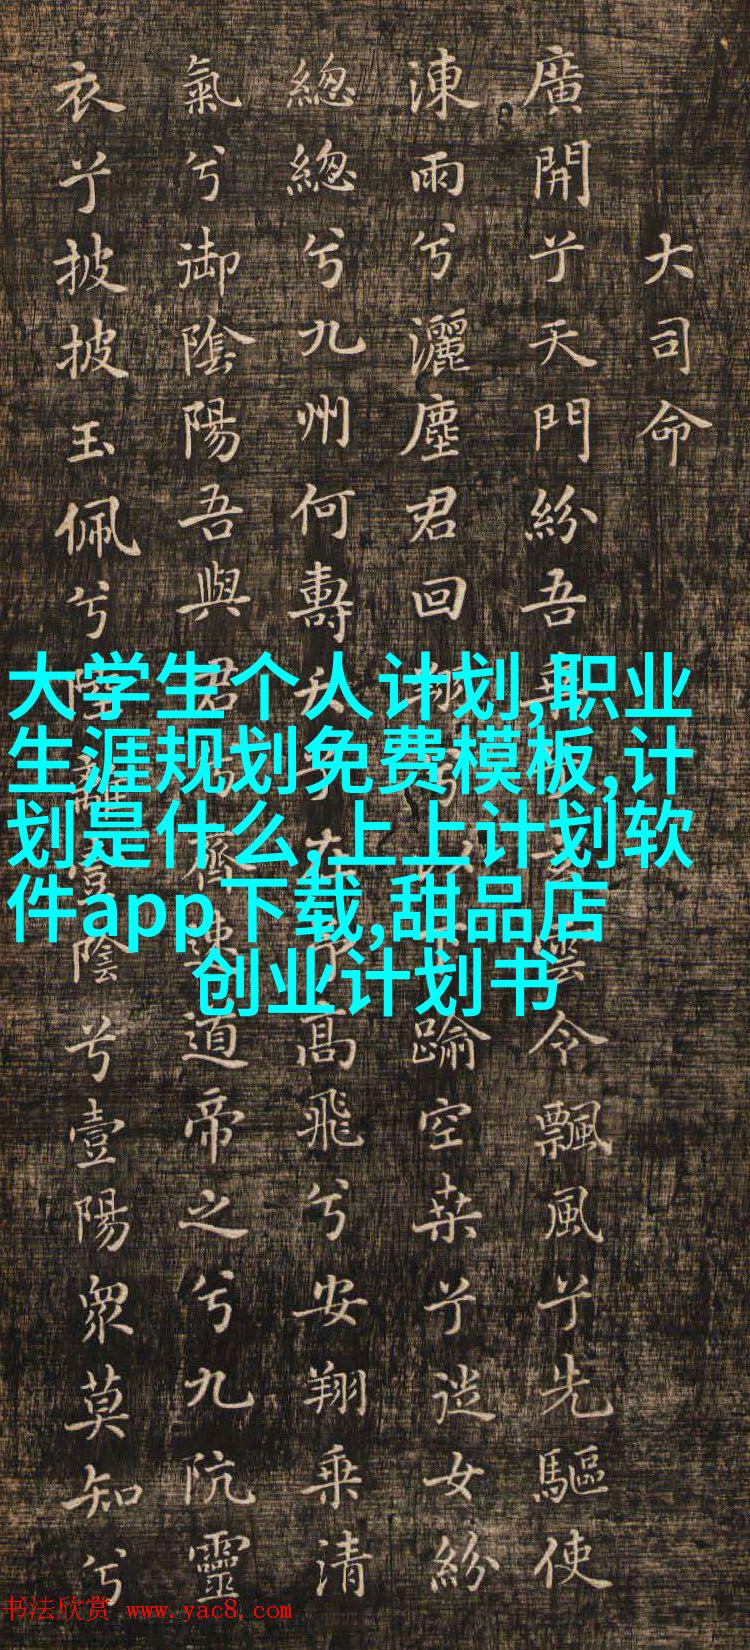 大司命
廣開兮天門紛吾乘雲令飄風兮先驅使
涷雨兮灑塵君回翔兮下踰空桒兮從女紛
緫緫兮九州何壽夭兮在高飛兮安翔乘清
氣兮御陰陽吾與君齊速道帝之兮九阬靈
衣兮披披玉佩兮陸離壹陰兮壹陽衆莫知兮
大学生个人计划,职业
生涯规划免费模板,计
划是什么,上上计划软
件app下载,甜品店
创业计划书
书法欣赏 www.yac8.com